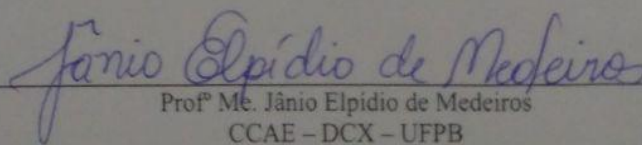 Jânio Elpídio de Medeiros
Profº Me. Jânio Elpídio de Medeiros
CCAE – DCX – UFPB